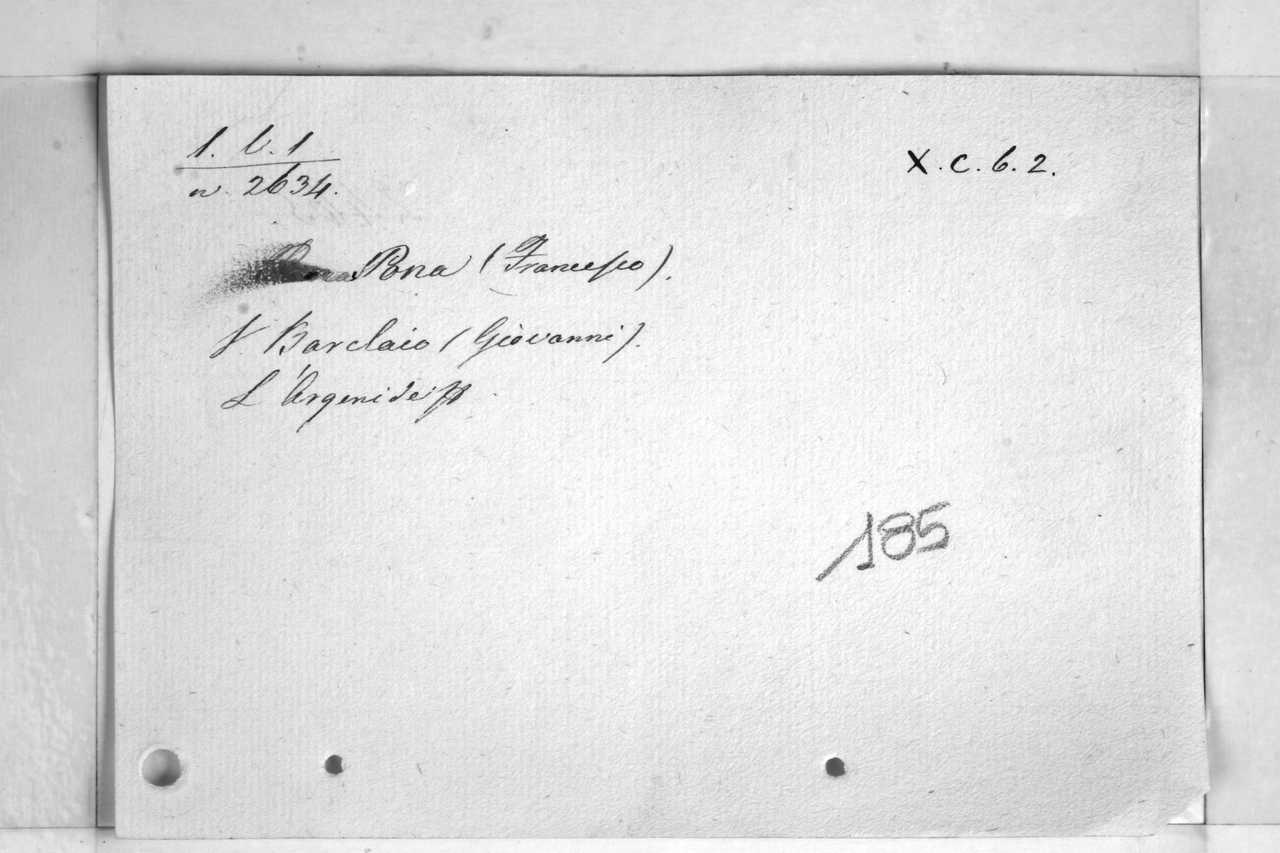 1. b. 1
X. c. 6. 2.
n. 2634.
Pona (Francesco).
V. Barclaio (Giovanni).
L'Argenide
185